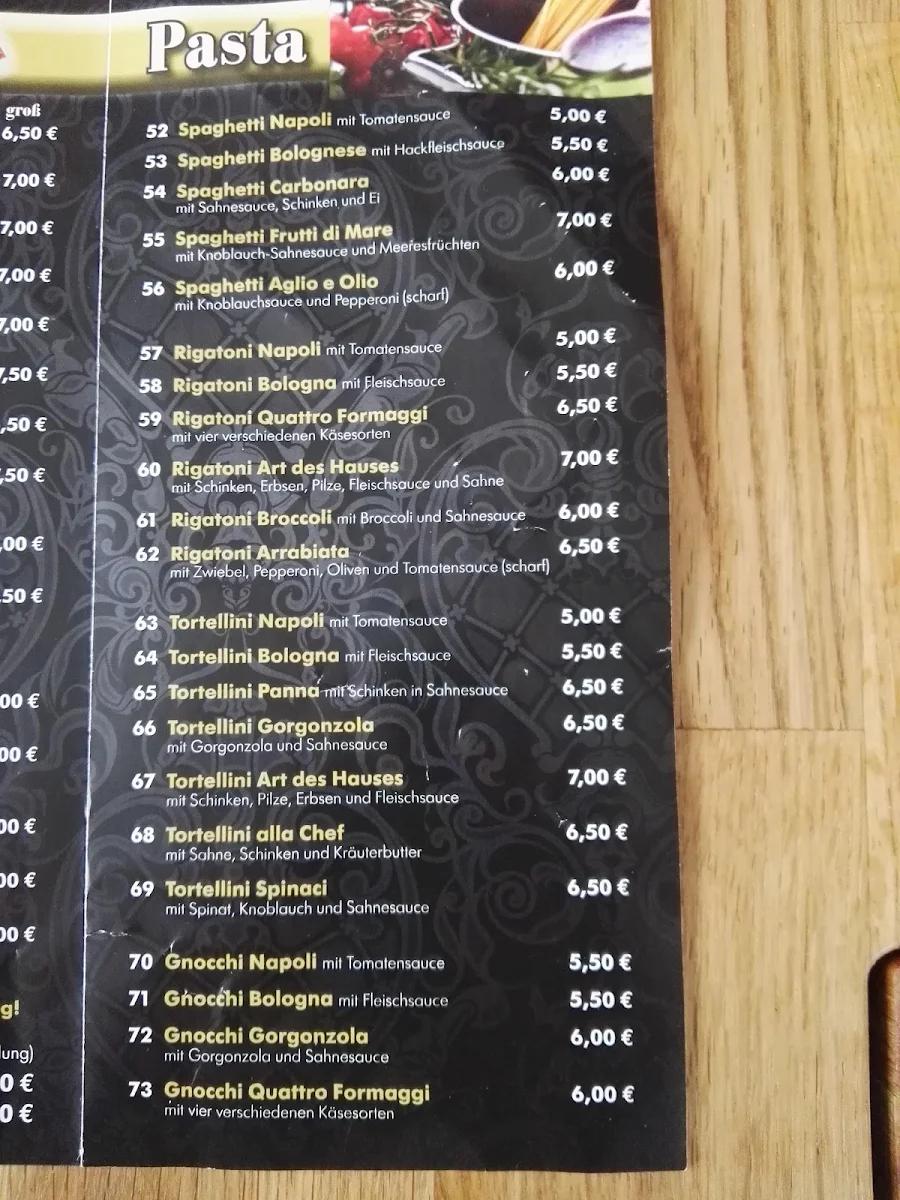 Pasta
groß
6,50 €
7,00 €
7,00 €
7,00 €
7,00 €
,50 €
,50 €
,50 €
,00 €
,50 €
00 €
00 €
00 €
00 €
00 €
g!
lung)
0 €
0 €
52 Spaghetti Napoli mit Tomatensauce 5,00 €
53 Spaghetti Bolognese mit Hackfleischsauce 5,50 €
54 Spaghetti Carbonara 6,00 €
mit Sahnesauce, Schinken und Ei
55 Spaghetti Frutti di Mare 7,00 €
mit Knoblauch-Sahnesauce und Meeresfrüchten
56 Spaghetti Aglio e Olio 6,00 €
mit Knoblauchsauce und Pepperoni (scharf)
57 Rigatoni Napoli mit Tomatensauce 5,00 €
58 Rigatoni Bologna mit Fleischsauce 5,50 €
59 Rigatoni Quattro Formaggi 6,50 €
mit vier verschiedenen Käsesorten
60 Rigatoni Art des Hauses 7,00 €
mit Schinken, Erbsen, Pilze, Fleischsauce und Sahne
61 Rigatoni Broccoli mit Broccoli und Sahnesauce 6,00 €
62 Rigatoni Arrabiata 6,50 €
mit Zwiebel, Pepperoni, Oliven und Tomatensauce (scharf)
63 Tortellini Napoli mit Tomatensauce 5,00 €
64 Tortellini Bologna mit Fleischsauce 5,50 €
65 Tortellini Panna mit Schinken in Sahnesauce 6,50 €
66 Tortellini Gorgonzola 6,50 €
mit Gorgonzola und Sahnesauce
67 Tortellini Art des Hauses 7,00 €
mit Schinken, Pilze, Erbsen und Fleischsauce
68 Tortellini alla Chef 6,50 €
mit Sahne, Schinken und Kräuterbutter
69 Tortellini Spinaci 6,50 €
mit Spinat, Knoblauch und Sahnesauce
70 Gnocchi Napoli mit Tomatensauce 5,50 €
71 Gnocchi Bologna mit Fleischsauce 5,50 €
72 Gnocchi Gorgonzola 6,00 €
mit Gorgonzola und Sahnesauce
73 Gnocchi Quattro Formaggi 6,00 €
mit vier verschiedenen Käsesorten